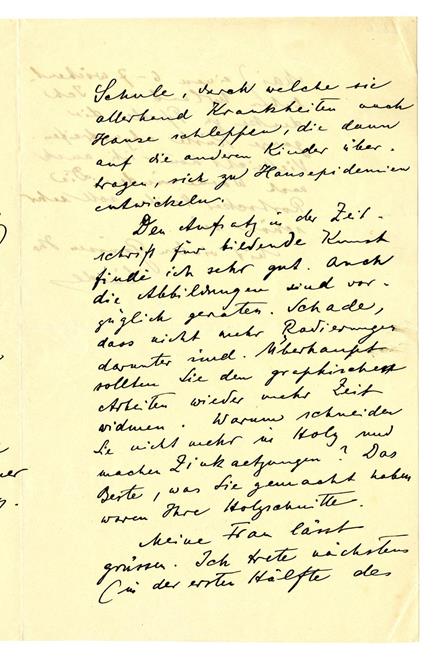 Schule, durch welche sie
allerhand Krankheiten nach
Hause schleppen, die dann
auf die anderen Kinder über-
tragen, sich zu Hausepidemien
entwickeln.
Den Aufsatz in der Zeit-
schrift für bildende Kunst
finde ich sehr gut. Auch
die Abbildungen sind vor-
züglich geraten. Schade,
dass nicht mehr Radierungen
darunter sind. Überhaupt
sollten Sie den graphischen
Arbeiten wieder mehr Zeit
widmen. Warum schneiden
Sie nicht mehr in Holz und
machen Zinkaetzungen? Das
Beste, was Sie gemacht haben
waren Ihre Holzschnitte.
Meine Frau lässt
grüssen. Ich trete nächstens
(in der ersten Hälfte des